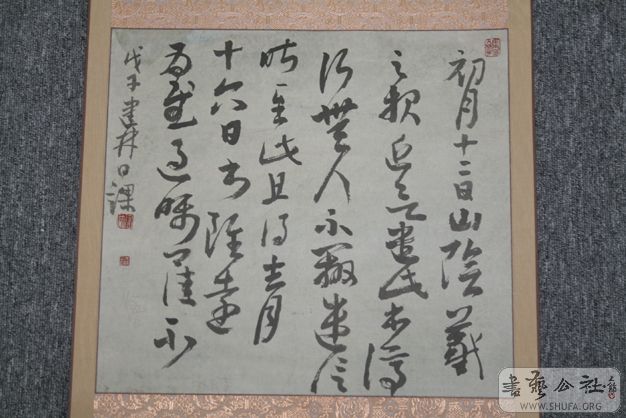 初月十二日山陰羲
之報近欲遣此書停
行無人不辦遣信
昨至此且得去月
十六日書雖遠
為慰過囑卿佳不
戊子建林日課
書藝公社
WWW.SHUFA.ORG